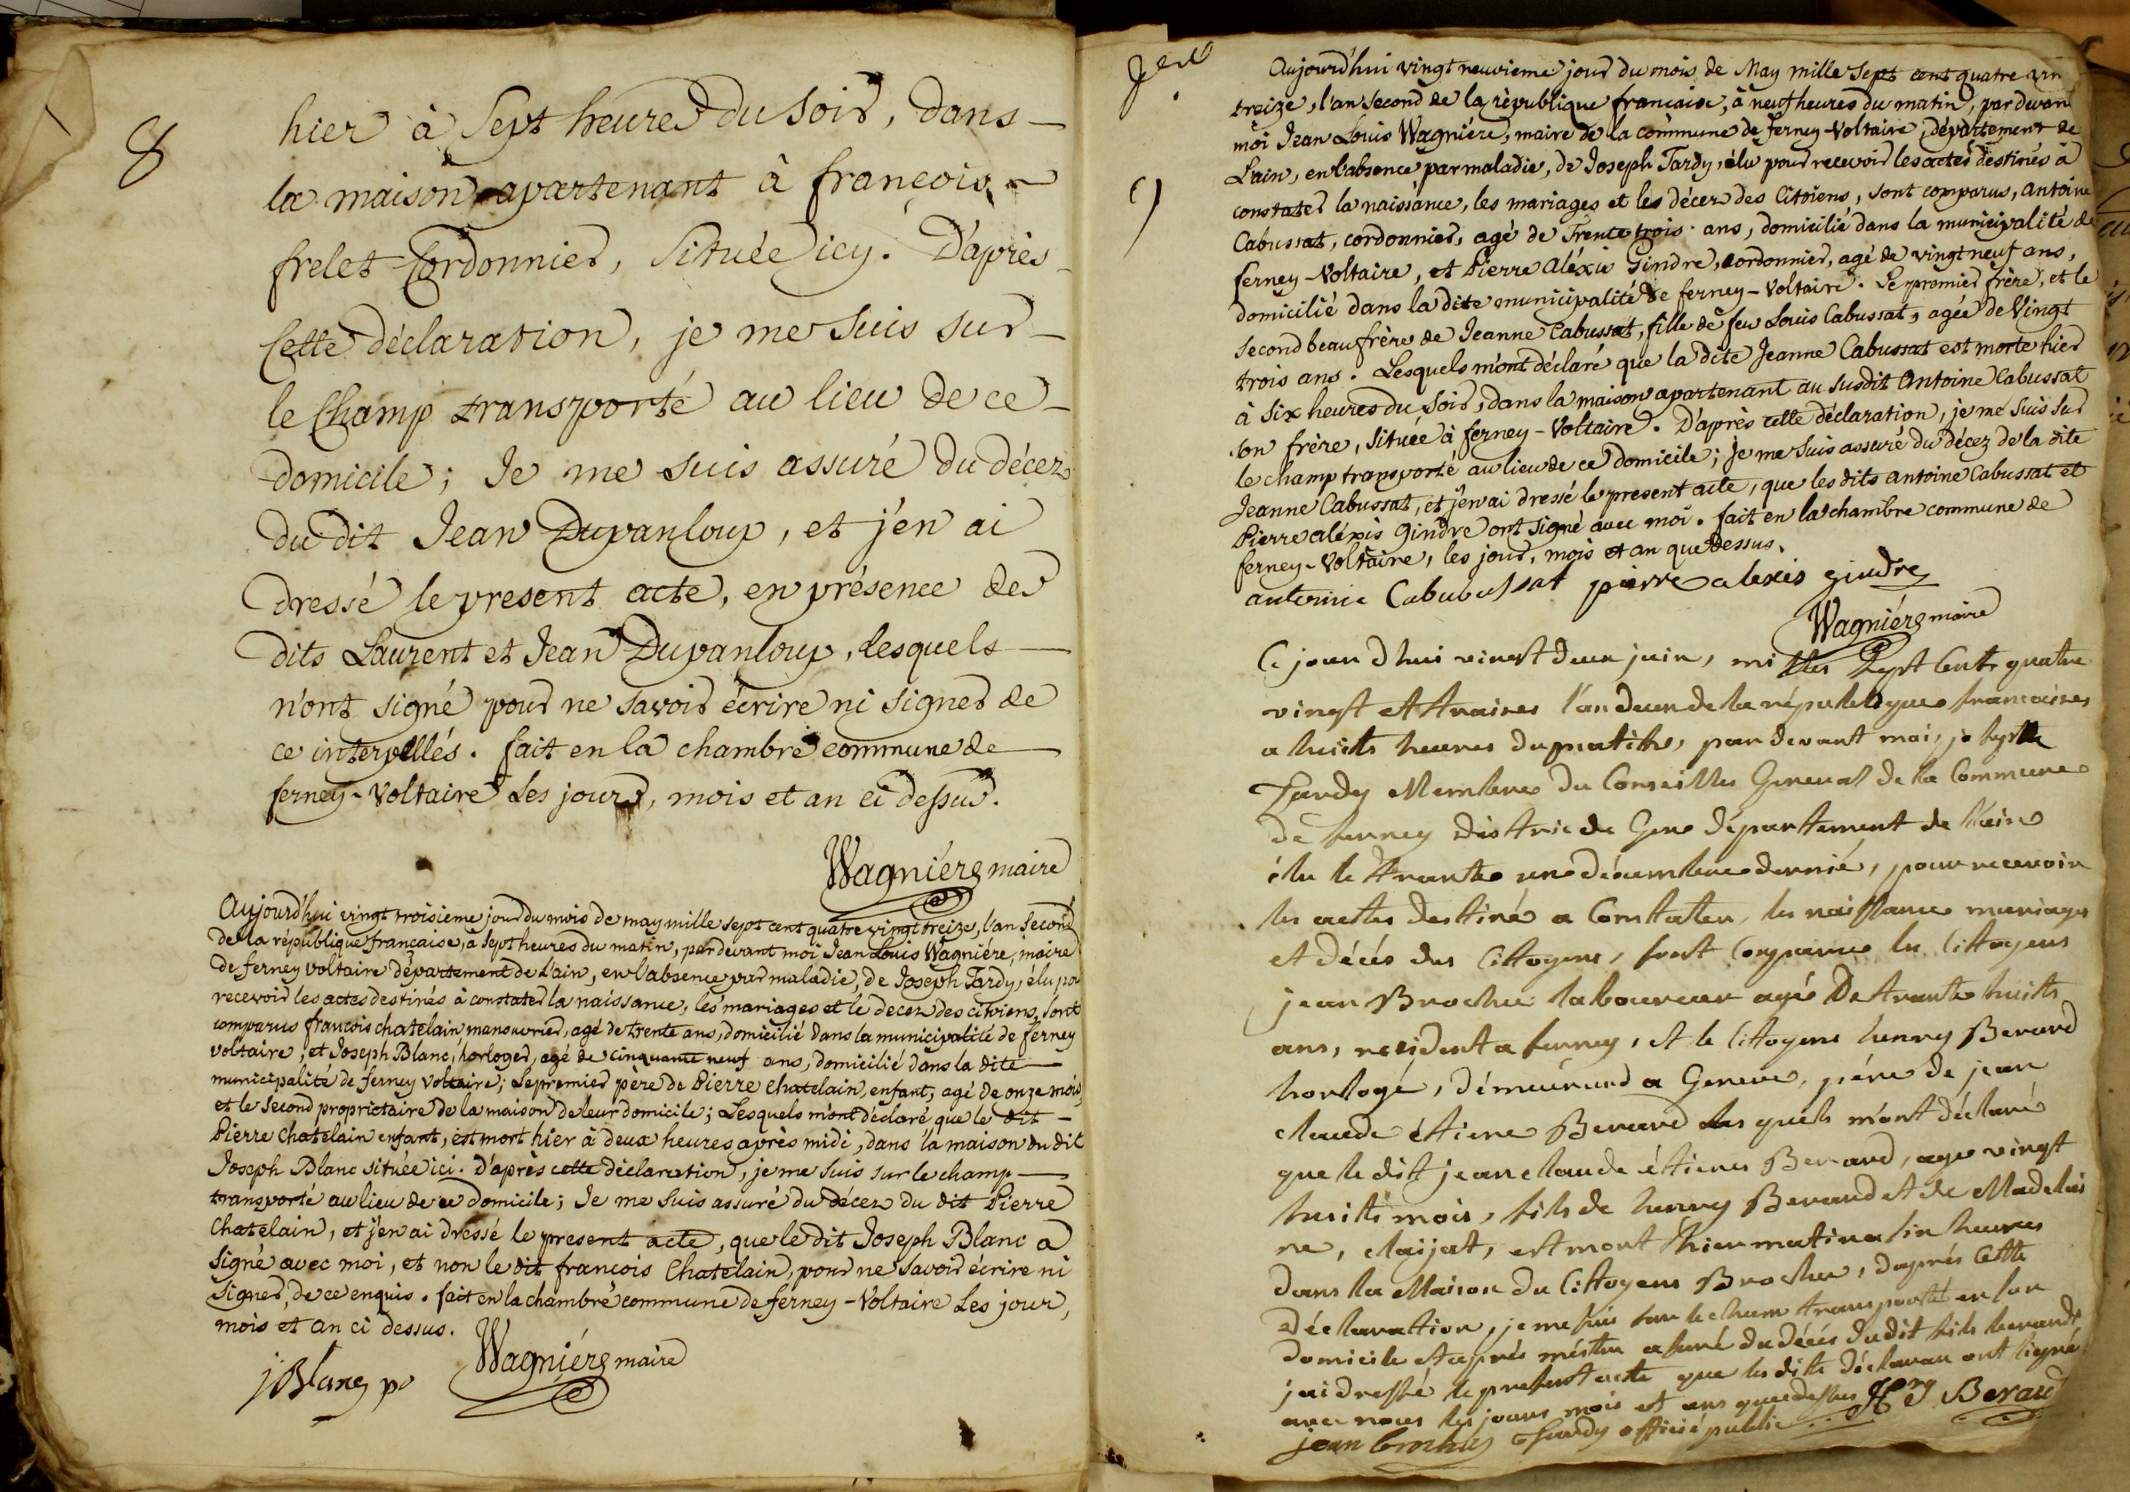 8
hier à Sept heures du Soir, dans
la maison apartenant à françois
frelet Cordonnier, Située icy. D'après
Cette déclaration, je me Suis sur
le Champ transporté au lieu de ce
domicile; Je me suis assuré du décez
du dit Jean Dupanloup, et j'en ai
dressé le present acte, en présence des
dits Laurent et Jean Dupanloup, lesquels
n'ont signé pour ne savoir écrire ni signer de
ce interpellés. fait en la chambre commune de
ferney-Voltaire Les jour, mois et an ci dessus.
Wagnière maire
Aujourd'hui vingt troisieme jour du mois de may mille sept cent quatre vingt treize, l'an Second
de la république française, à Sept heures du matin, par devant moi Jean Louis Wagnière, maire
de ferney voltaire département de L'ain, en l'absence par maladie, de Joseph Tardy, élu pou
recevoir les actes destinés à constater la naissance, les mariages et le decez des citoiens, Sont
comparus françois chatelain manouvrier, agé de trente ans, domicilié dans la municipalité de ferney
voltaire; et Joseph Blanc, horloger, agé de cinquante neuf ans, domicilié dans la dite
municipalité de ferney voltaire; Le premier père de Pierre chatelain, enfant, agé de onze mois,
et le Second proprietaire de la maison de leur domicile; Lesquels m'ont déclaré que le dit
Pierre Chatelain enfant, est mort hier à deux heures après midi, dans la maison du dit
Joseph Blanc située ici. D'après cette déclaration, je me suis sur le champ
transporté au lieu de ce domicile; Je me suis assuré du décez du dit Pierre
Chatelain, et j'en ai dressé le present acte, que le dit Joseph Blanc a
signé avec moi, et non le dit françois Chatelain, pour ne Savoir écrire ni
Signer, de ce enquis. fait en la chambre commune de ferney-Voltaire Les jour,
mois et an ci dessus.
j Blanc Wagnière maire
Gex
9
Aujourd'hui vingt neuvieme jour du mois de May mille Sept cent quatre vin
treize, l'an Second de la république francaise, à neuf heures du matin, par devan
moi Jean Louis Wagnière, maire de la commune de ferney-Voltaire, département de
L'ain, en l'absence par maladie, de Joseph Tardy, élu pour recevoir les actes destinés à
constater la naissance, les mariages et les décez des Citoiens, sont comparus, antoine
Cabussat, cordonnier, agé de Trente trois ans, domicilié dans la municipalité de
ferney-Voltaire, et Pierre aléxis Gindre, cordonnier, agé de vingt neuf ans,
domicilié dans la dite municipalité de ferney-Voltaire. Le premier frère, et le
second beau frère de Jeanne Cabussat, fille de feu Louis Cabussat, agée de Vingt
trois ans. Lesquels m'ont déclaré que la dite Jeanne Cabussat est morte hier
à six heures du soir, dans la maison apartenant au susdit Antoine Cabussat
son frère, située à ferney-Voltaire. D'après cette déclaration, je me suis sur
le champ transporté au lieu de ce domicile; je me suis assuré du décez de la dite
Jeanne Cabussat, et j'en ai dressé le present acte, que les dits antoine Cabussat et
Pierre aléxis Gindre ont signé avec moi. fait en la chambre commune de
ferney-Voltaire, les jour, mois et an que dessus.
antoinie Cabubussat pierre alexis gindre
Wagnière maire
Ce jour d'hui vingt deux juin, milles Sept Cents quatre
vingt et traizes l'an deux de la républeique francaises
a huits heures du matin, par devant moi, joseph
Tardy Membre du Conseilles General de la Commune
de ferney district de Gex département de l'ain
élu le trante une décembre dernié, pour recevoir
les actes destiné a Constater, les naissance mariages
et décés des Cittoyens, sont Comparue les Cittoyens
jean Brochu laboureur agé De trante huits
ans, resident a ferney, et le Cittoyens henry Berard
horlogé, démeurand a Geneve, père de jean
claude éttiene Berard les quels m'ont déclaré
que le dit jean claude éttienes Berard, age vingt
huits mois, fils de henry Beraud et de Madelai
ne, claijat, est mort hier matin a six heures
dans la Maison du Cittoyens Brochu, daprés Cette
Déclaration, je me suis sur le cham transporté en son
domicile et aprés mèstre assuré du décés dudit fils berard
jai dressé le present acte que les dits déclaran ont signé
avec nous les jours mois et ans que dessus Hry Beraud
jean brochu Tardy officié public